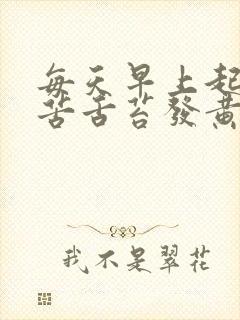 每天早上起
苦舌苔發黄
我不是翠花